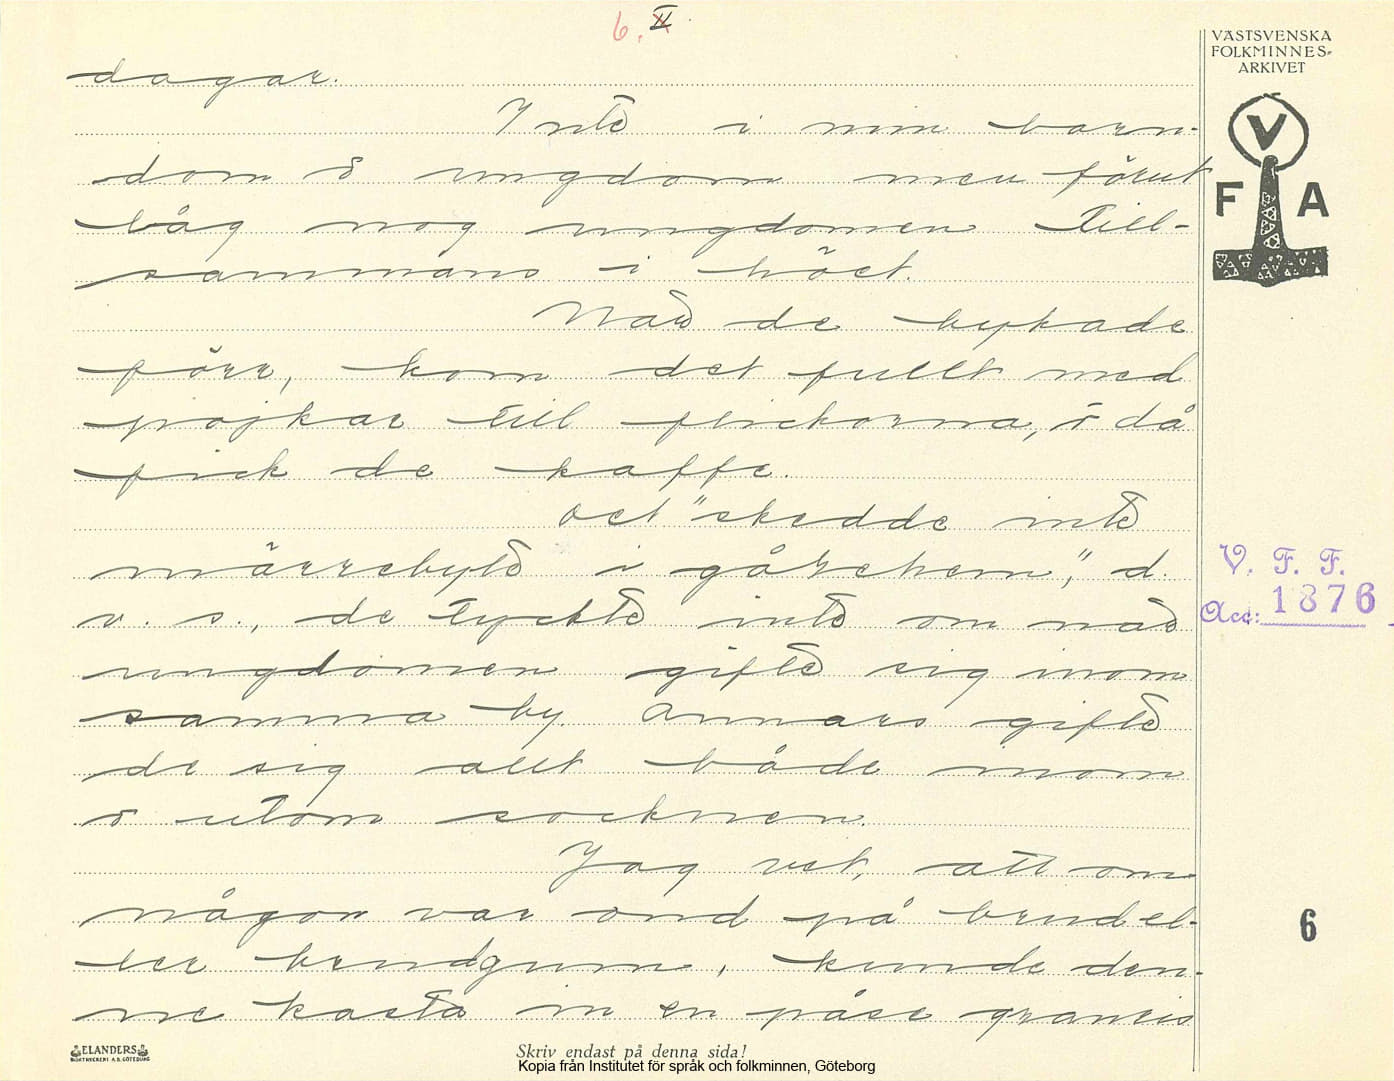 6. II
VÄSTSVENSKA
FOLKMINNES-
ARKIVET
V
F A
dagar.
Inte i min barn-
dom o ungdom men förut
låg nog ungdomen till-
sammans i höet.
När de bykade
förr, kom det fullt med
pojkar till flickorna, o då
fick de kaffe.
Det "skedde inte
märrebyte i gårehem", d.
v. s., de tyckte inte om när
ungdomen gifte sig inom
samma by. Annars gifte
de sig allt både inom
o utom socknen.
Jag vet, att om
någon var ond på brud el-
ler brudgum, kunde den-
ne kasta in en påse graneis
V. F. F.
Acc: 1876
6
ELANDERS
BOKTRYCKERI A.B. GÖTEBORG
Skriv endast på denna sida!
Kopia från Institutet för språk och folkminnen, Göteborg